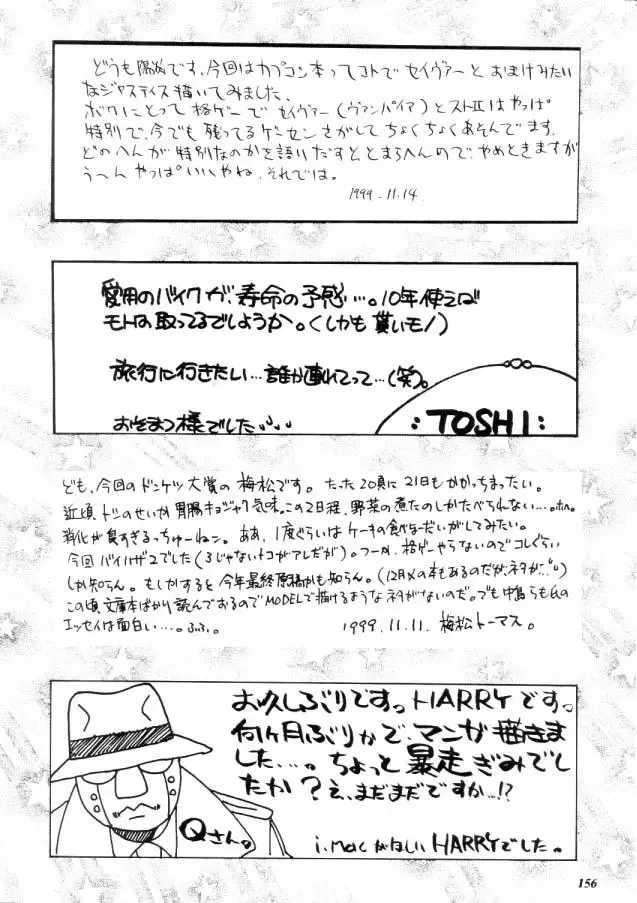 どうも陽海です、今回はカプコン本ってコトでセイヴァーとおまけみたい
なジャスティス描いてみました。
ボクにとって格ゲーでセイヴァー(ヴァンパイア)とストⅡはやっぱ
特別で、今でも残ってるゲーセンさがしてちょくちょくあそんでます。
どのへんが特別なのかを語りだすととまらへんので、やめときますが
う〜んやっぱいいやね、それでは。
1999.11.14
愛用のバイクが、寿命の予感…。10年使えば
モトは取ってるでしょうか。(しかも貰いモノ)
旅行に行きたい…誰か連れてって…(笑)。
おそまつ様でした、、、
:TOSHI:
ども、今回のドンケツ大賞の梅松です。たった20頁に21日もかかっちまったい。
近頃、トシのせいか胃腸キョジャク気味。この2日程、野菜の煮たのしかたべられない…。
消化が良すぎるっちゅーねン。ああ、1度ぐらいはケーキの食べほーだいがしてみたい。
今回バイハザ2でした(3じゃないトコがアレだが)。フーか、格ゲーやらないのでコレぐらい
しか知らん。もしかすると今年最終原稿かも知らん。(12月〆の本もあるのだがネタが…)
この頃、文庫本ばかり読んでおるのでMODELで描けるようなネタがないのだ。でも中島らも氏の
エッセイは面白い…。ふふ。 1999.11.11. 梅松トーマス。
お久しぶりですっHARRYですっ
何ヶ月ぶりかで、マンガ描きま
した…。ちょっと暴走ぎみでし
たか?え、まだまだですか…!?
Qさん。
i.macがほしいHARRYでした。
156